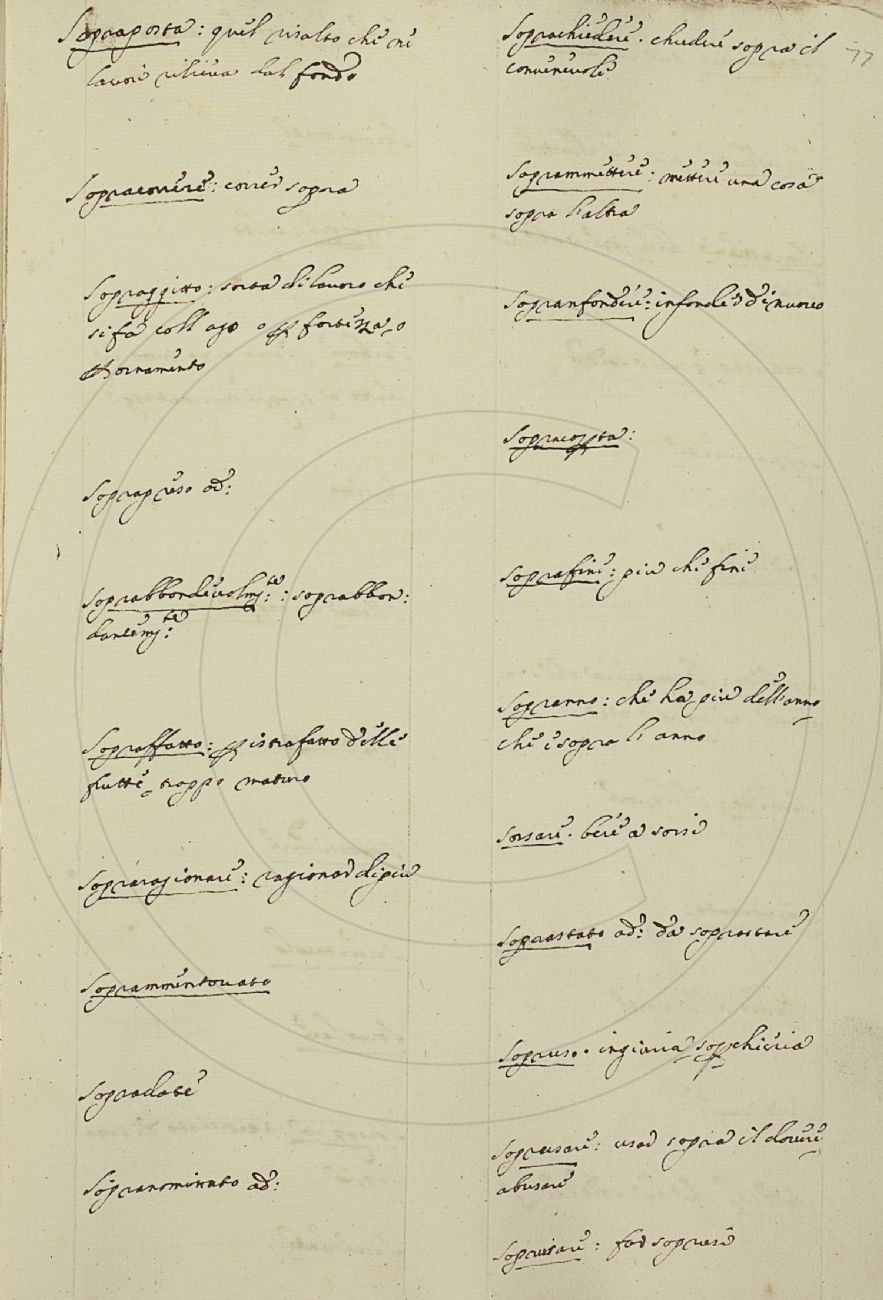 77
Sopraposta: quel risalto che ne
lavori rilieva dal fondo
Sopracorrere: correr sopra
Sopraggitto: sorta di lavoro che
si fa coll' ago o p fortezza, o
p ornamento
Soprapreso ad:
Soprabbondevolmte: soprabbon:
dantemte:
Sopraffatto: p istrafatto delle
frutte, troppo maturo
Sopraragionare: ragionar di piu
Soprammentovato
Sopradote
Sopranominato ad:
Soprachiedere. chiedere sopra il
convenevole
Soprammettere: mettere una cosa
sopra l'altra
Sopranfondere: infonder di nuovo
Sopracopta:
Soprafine: piu che fine
Sopranno: che ha piu dell'anno
che è sopra l'anno
Sorsare. bere a sorsi
Soprastato ad: da soprastare
Sopruso. ingiuria, sopchieria
Soprusare: usar sopra il dovere
abusare
Soprusare: far soprusi